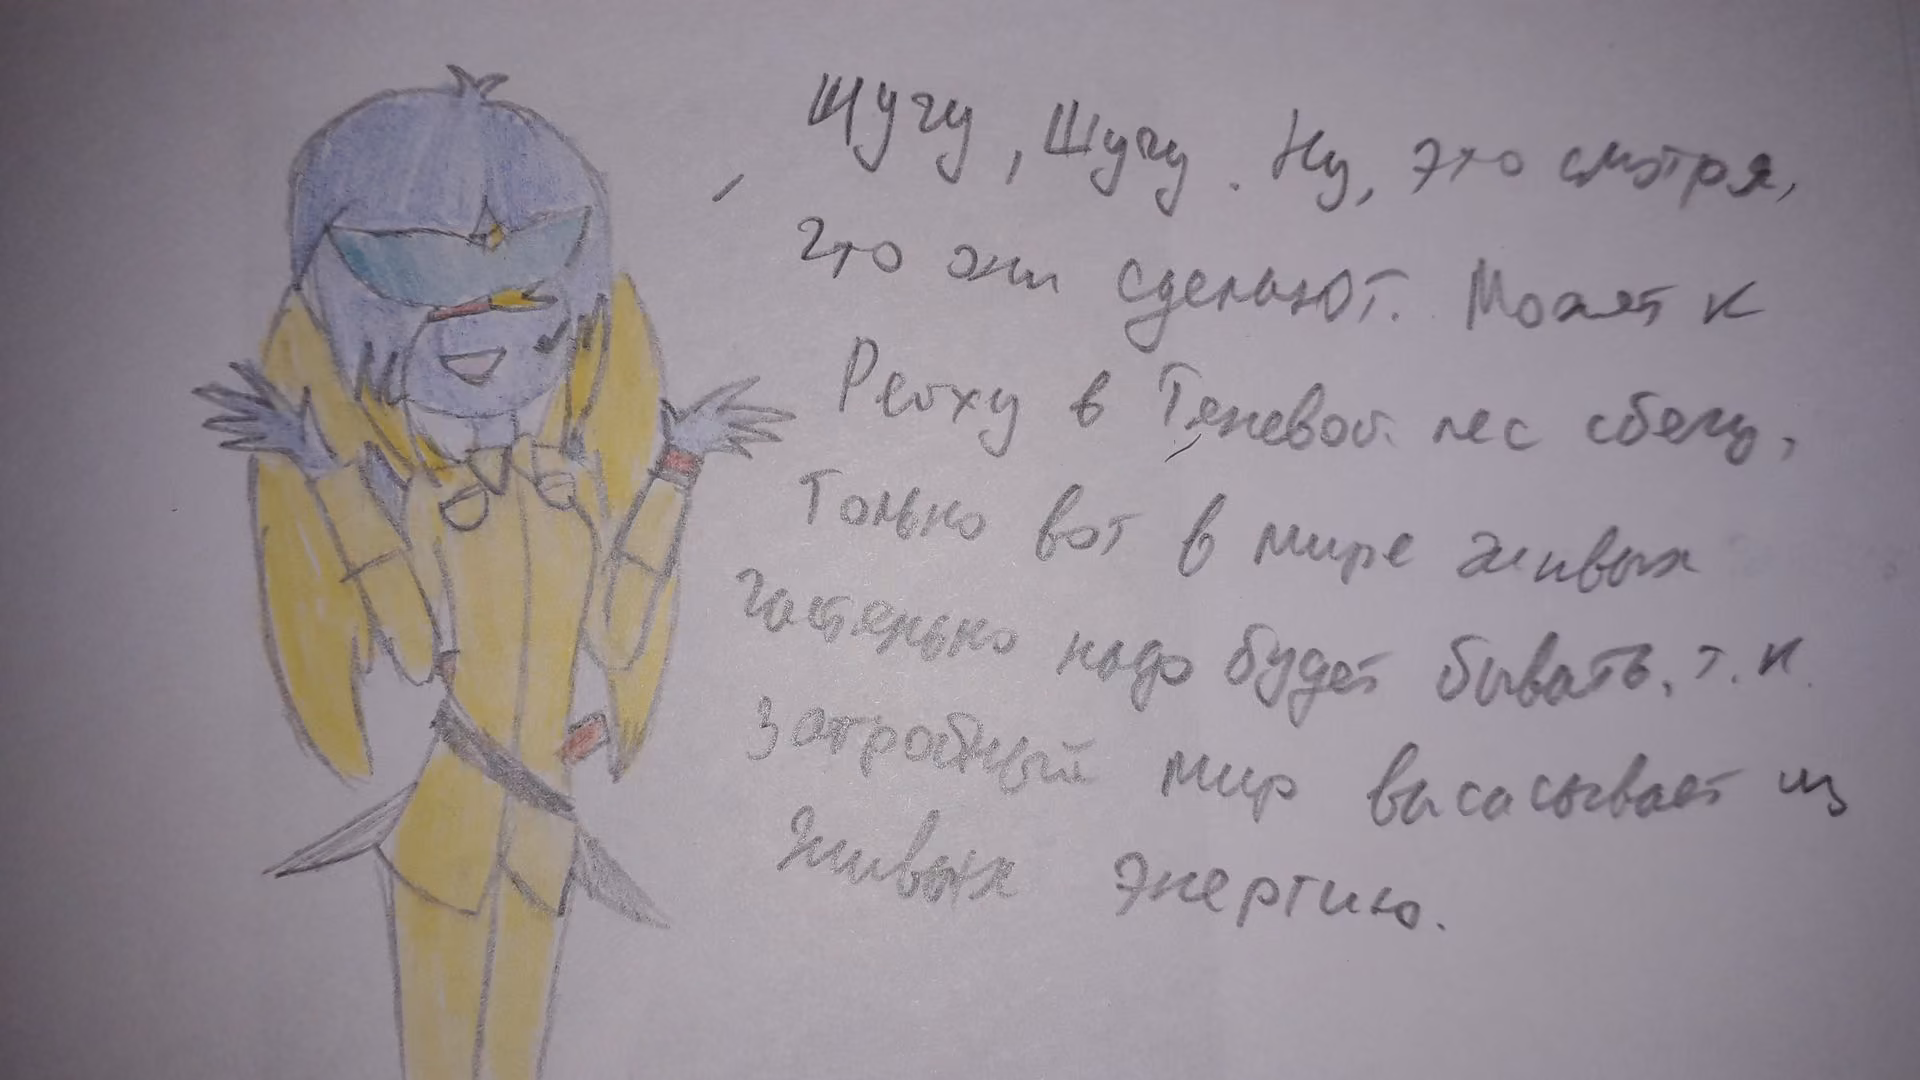 Шучу, Шучу. Ну, это смотря,
что они сделают. Может к
в Теневой лес сбегу,
Только вот в мире живых
надо будет бывать, т.к.
мир высасывает из
Живых энергию.